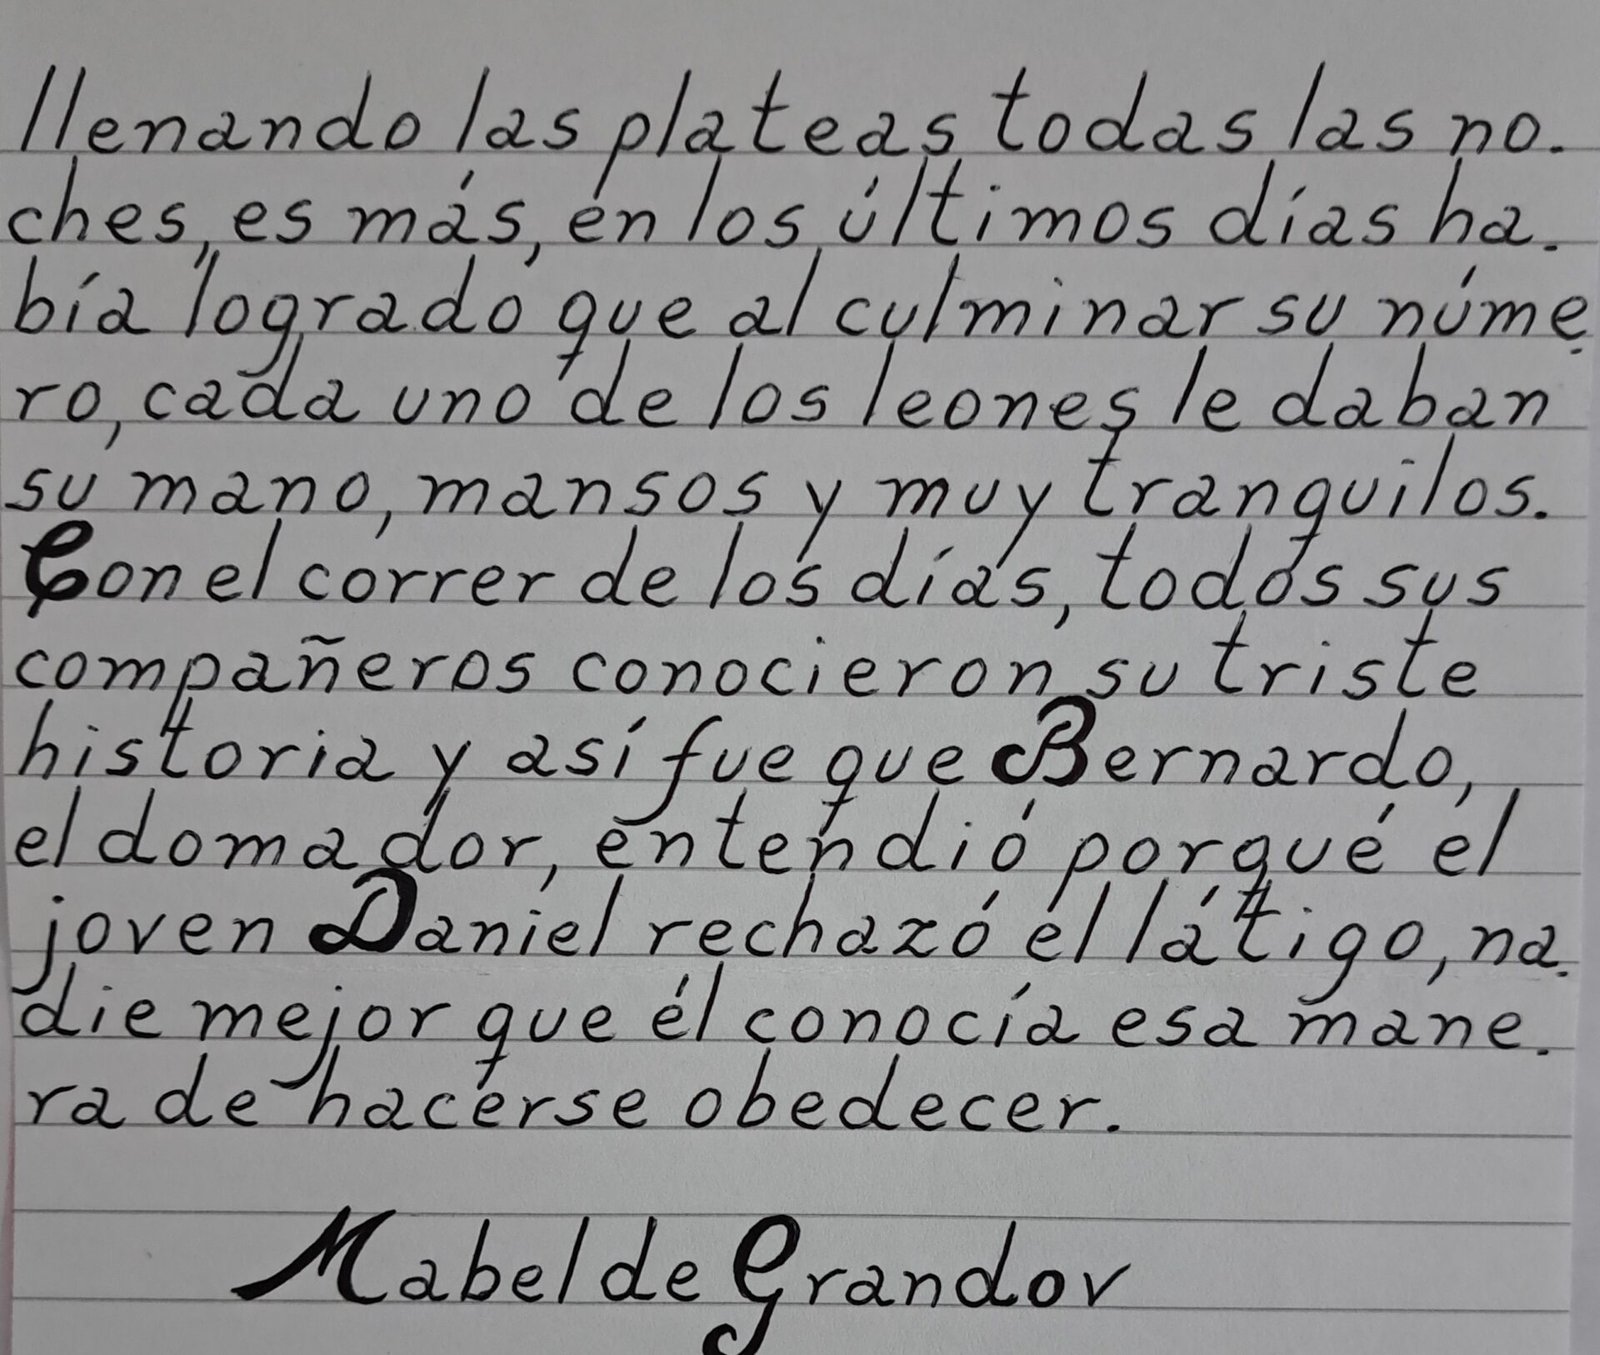 llenando las plateas todas las no.
ches, es más, en los últimos días ha.
bía logrado que al culminar su núme.
ro, cada uno de los leones le daban
su mano, mansos y muy tranquilos.
Con el correr de los días, todos sus
compañeros conocieron su triste
historia y así fue que Bernardo,
el domador, entendió porqué el
joven Daniel rechazó el látigo, na.
die mejor que él conocía esa mane.
ra de hacerse obedecer.
Mabel de Grandov